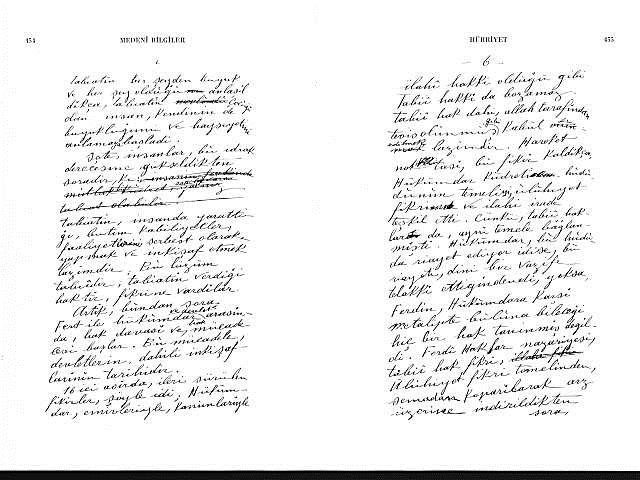 454
MEDENÎ BİLGİLER
tabiatin her şeyden büyük
ve her şey olduğu anlaşıl
dıkça, tabiatın çocuğu
olan insan, kendinin de
büyüklüğünü ve haysiyetini
anlamağa başladı.
İşte, insanlar, bu idrak
derecesine yükseldikten
sonradır ki
tabiatın, insanda yarattı-
ğı, bütün kabiliyetler,
faaliyet serbest olarak,
yapmak ve inkişaf etmek
lâzımdır. Bu lüzum
tabiidir; tabiatın verdiği
haktır, fikrine vardılar
Artık, bundan sora,
Fert ile hükümdar arasın-
da, hak davası ve mücade-
lesi başlar. Bu mücadele,
devletlerin dahilî inkişaf-
larının tarihidir.
16 ıncı asırda, ileri sürülen
fikirler, şöyle idi, Hüküm-
dar, emirleriyle, kanunlariyle
HÜRRİYET
455
— 6 —
ilahî hakkı olduğu gibi
tabiî hakkı da bozamaz.
tabiî hak dahi, allah tarafından
kabul
lâzımdır. Hareket
noktası, bu fikir kaldıkça,
Hükümdar kudreti, hudu-
dunun temelini, ülûhiyet
fikri ve ilahî irade
teşkil etti. Çünkü, tabiî hak-
lar da, aynı temele bağlan-
mıştı. Hükümdar, bu hudu-
da riayet ediyor idise, bu
riayeti, dinî bir vazife
telâkki ettiğindendi, yoksa,
Ferdin, Hükümdara karşı
metalipte buluna bileceği
hiç bir hak tanınmış değil-
di. Ferdi Haklar nazariyesi,
tabiî hak fikri,
Ülûhiyet fikri temelinden,
semadan koparılarak arz
üzerine indirildikten
sora,